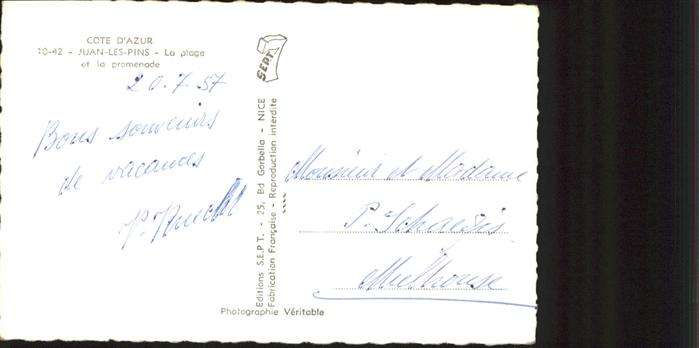 COTE D'AZUR
10-42 - JUAN-LES-PINS - La plage
et la promenade
20.7.57
Bons souvenirs
de vacances
SEPT
Editions S.E.P.T. - 25, Bd Gorbella - NICE
Fabrication Française - Reproduction interdite
Photographie Véritable
Monsieur et Madame
P.
Mulhouse